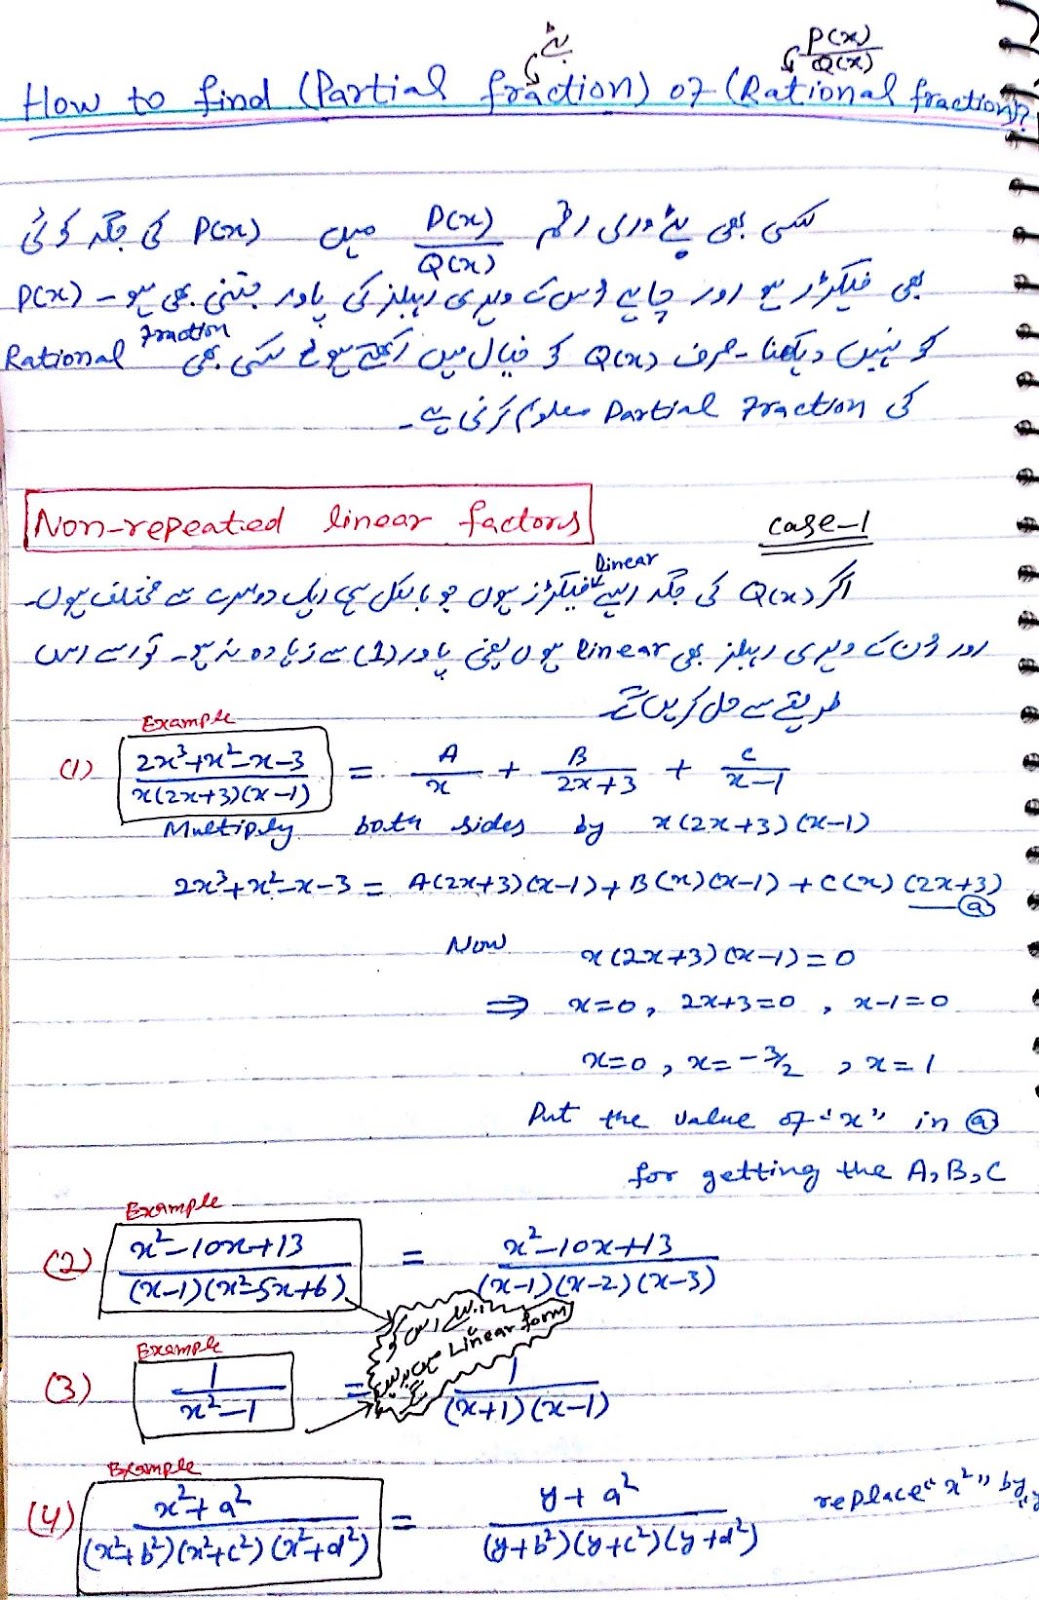 بٹے P(x)/Q(x)
How to find (Partial fraction) of (Rational fraction)?
کسی بھی بٹے والی رقم P(x)/Q(x) میں P(x) کی جگہ کوئی
بھی فیکٹر ہو اور چاہے اس کے ویری ایبلز کی پاور جتنی بھی ہو - P(x)
کو نہیں دیکھنا - صرف Q(x) کو خیال میں رکھتے ہوئے کسی بھی Rational Fraction
کی Partial Fraction معلوم کرنی ہے -
Non-repeated linear factors
case-1
اگر Q(x) کی جگہ ایسے Linear فیکٹرز ہوں جو بالکل ہی ایک دوسرے سے مختلف ہوں -
اور ان کے ویری ایبلز بھی linear ہوں یعنی پاور (1) سے زیادہ نہ ہو - تو اسے اس
طریقے سے حل کریں گے
Example
(1) 2x³+x²-x-3 / x(2x+3)(x-1) = A/x + B/2x+3 + C/x-1
Multiply both sides by x(2x+3)(x-1)
2x³+x²-x-3 = A(2x+3)(x-1)+B(x)(x-1)+C(x)(2x+3) —ⓐ
Now x(2x+3)(x-1)=0
⇒ x=0, 2x+3=0, x-1=0
x=0, x=-3/2, x=1
Put the value of "x" in ⓐ
for getting the A,B,C
Example
(2) x²-10x+13 / (x-1)(x²-5x+6) = x²-10x+13 / (x-1)(x-2)(x-3)
اس کو
Linear form
میں
Example
(3) 1 / x²-1 = 1 / (x+1)(x-1)
Example
(4) x²+a² / (x²+b²)(x²+c²)(x²+d²) = y+a² / (y+b²)(y+c²)(y+d²) replace "x²" by "y